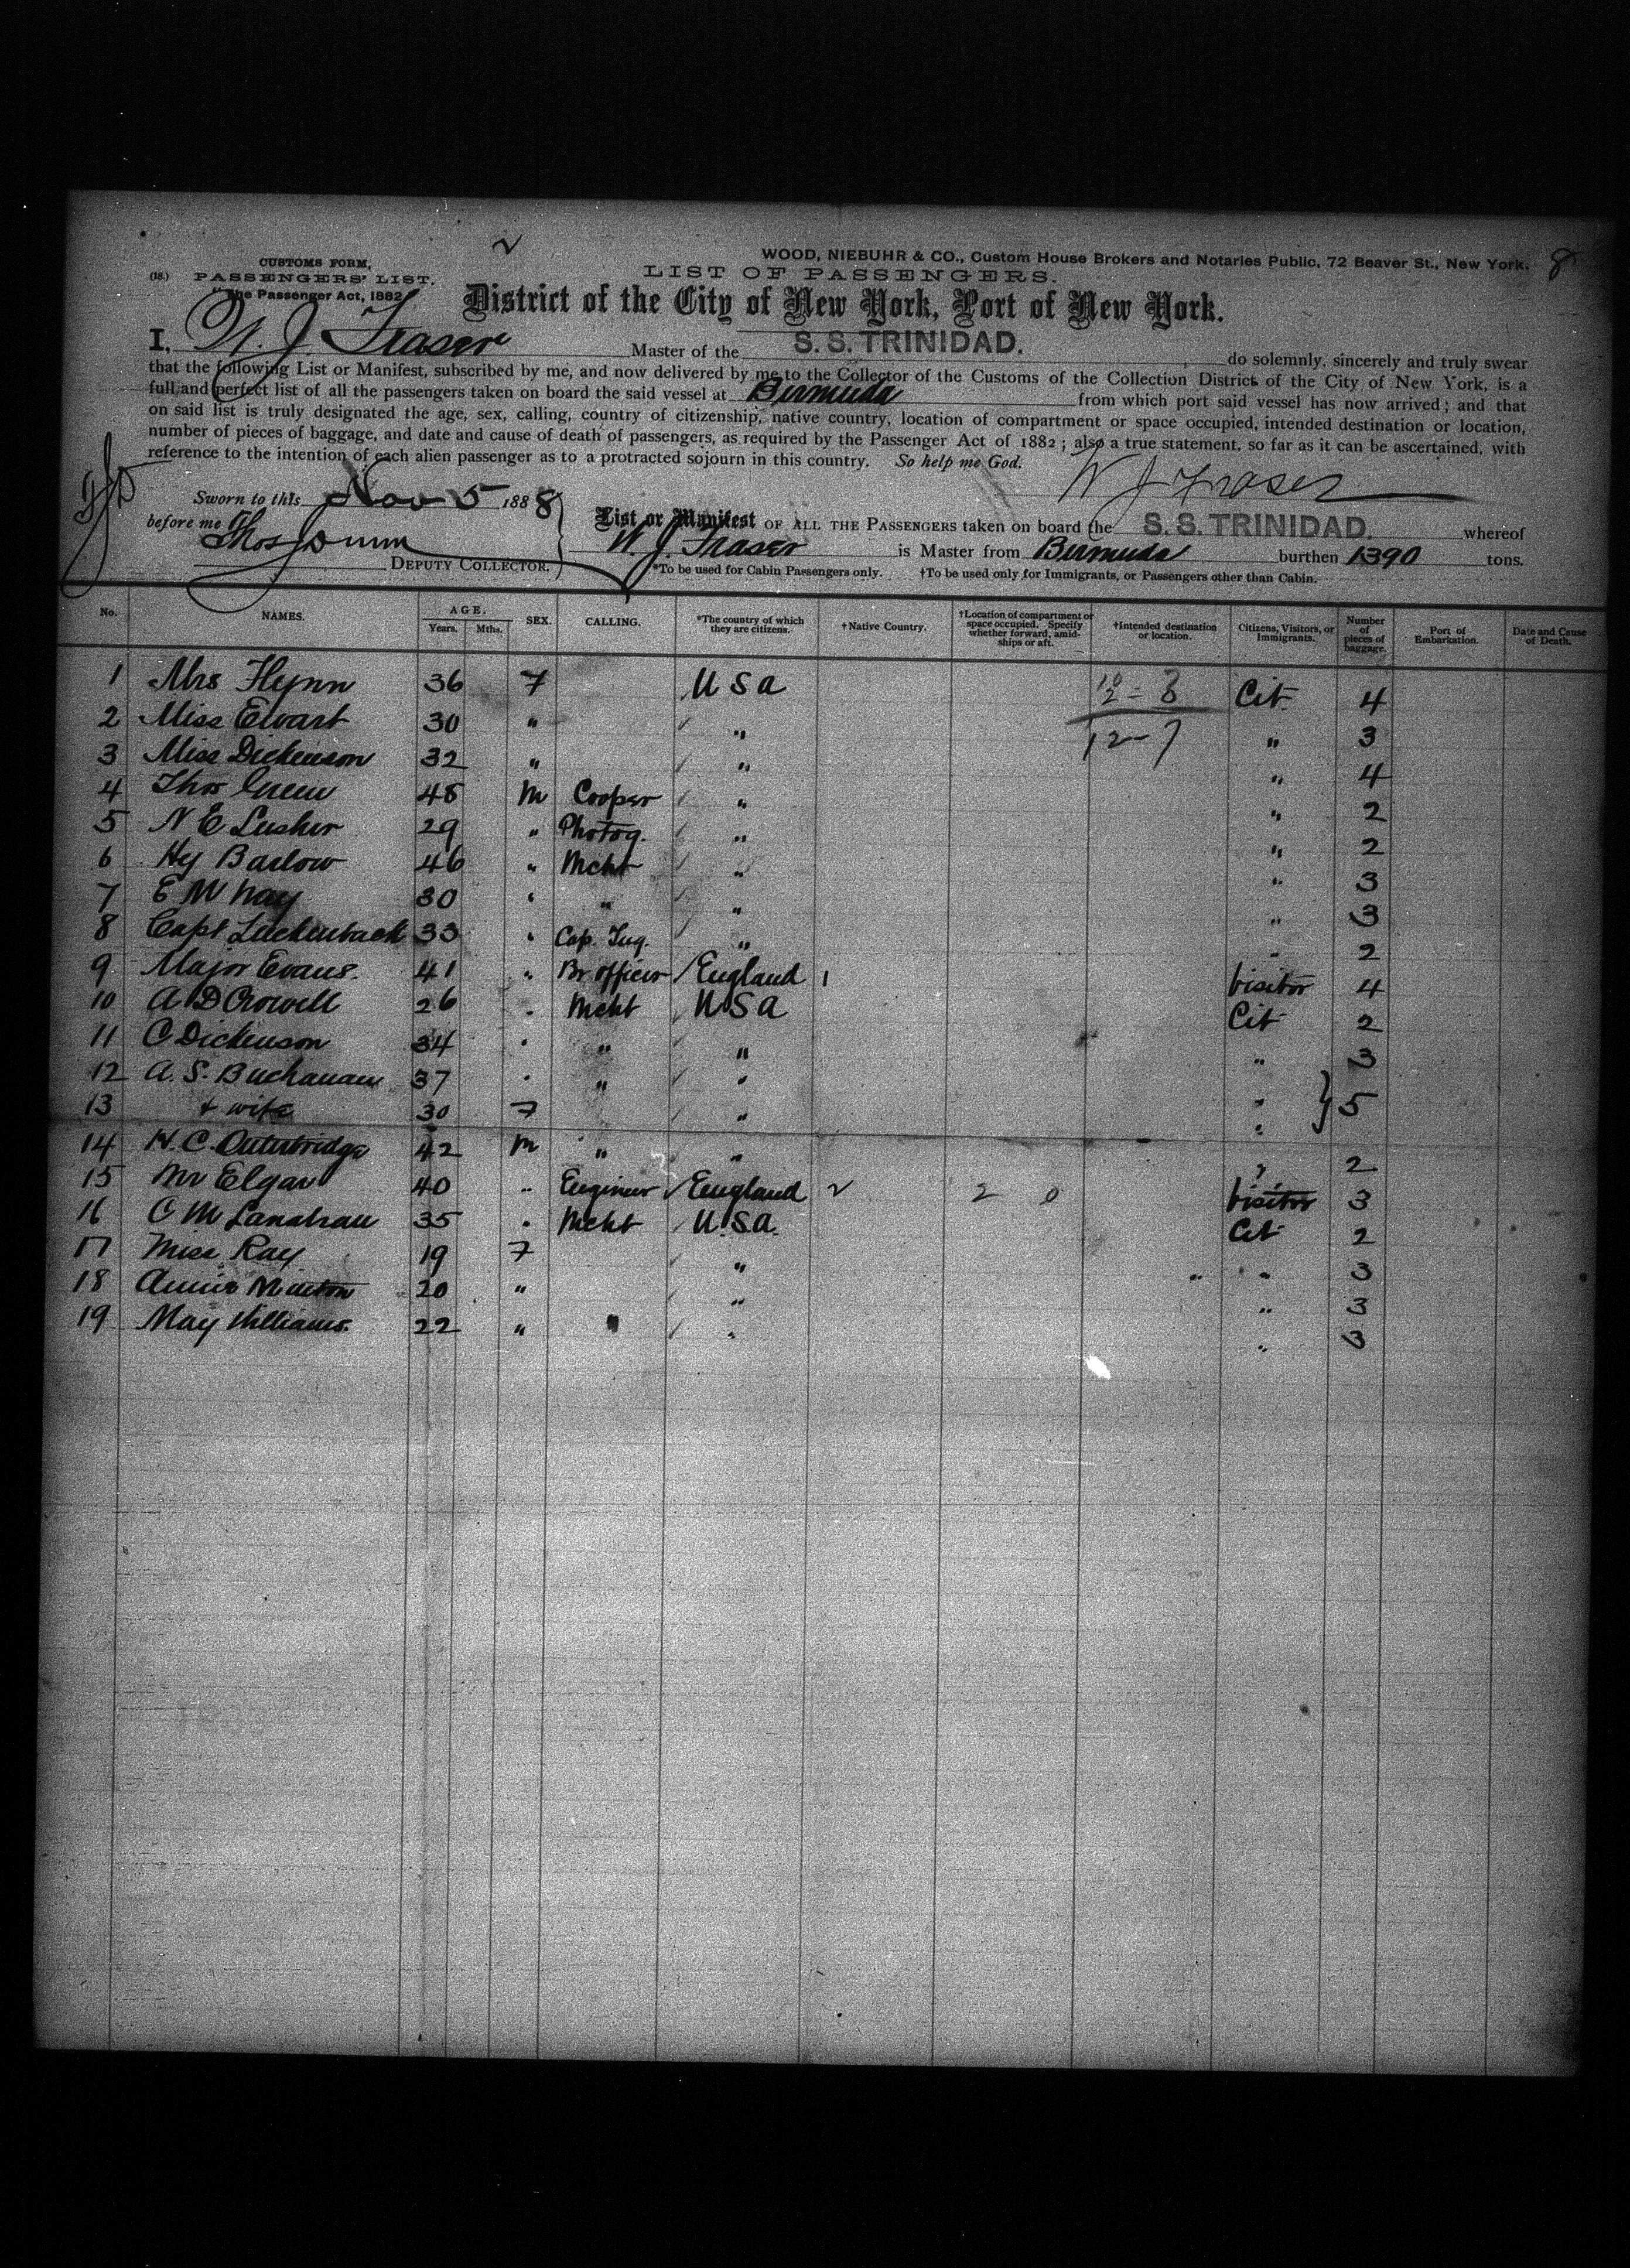 2
WOOD, NIEBUHR & CO., Custom House Brokers and Notaries Public, 72 Beaver St., New York. 8
(18.) CUSTOMS FORM,
PASSENGERS' LIST.
The Passenger Act, 1882
LIST OF PASSENGERS.
District of the City of New York, Port of New York.
I, W. J Fraser Master of the S. S. TRINIDAD. do solemnly, sincerely and truly swear
that the following List or Manifest, subscribed by me, and now delivered by me to the Collector of the Customs of the Collection District of the City of New York, is a
full and perfect list of all the passengers taken on board the said vessel at Bermuda from which port said vessel has now arrived; and that
on said list is truly designated the age, sex, calling, country of citizenship, native country, location of compartment or space occupied, intended destination or location,
number of pieces of baggage, and date and cause of death of passengers, as required by the Passenger Act of 1882; also a true statement, so far as it can be ascertained, with
reference to the intention of each alien passenger as to a protracted sojourn in this country. So help me God.
W J Fraser
Sworn to this Nov 5 1888
before me Thos Dunn
DEPUTY COLLECTOR.
List or Manifest OF ALL THE PASSENGERS taken on board the S. S. TRINIDAD. whereof
W. J. Fraser is Master from Bermuda burthen 1390 tons.
*To be used for Cabin Passengers only. †To be used only for Immigrants, or Passengers other than Cabin.
No. NAMES. AGE. Years. Mths. SEX. CALLING. *The country of which they are citizens. †Native Country. †Location of compartment or space occupied. Specify whether forward, amidships or aft. †Intended destination or location. Citizens, Visitors, or Immigrants. Number of pieces of baggage. Port of Embarkation. Date and Cause of Death.
1 Mrs Flynn 36 F U S A Cit 4
2 Miss Ewart 30 " " 12-7 " 3
3 Miss Dickenson 32 " " " 4
4 Thos 48 M Cooper " " 2
5 N E Lusher 29 " Photog. " " 2
6 Hy Barlow 46 " Mcht " " 3
7 E M Nay 30 " " " " 3
8 Capt Luckenback 33 " Cap. Tug. " " 2
9 Major Evans. 41 " Br officer England 1 Visitor 4
10 A D Crowell 26 " Mcht U S A Cit 2
11 C Dickenson 34 " " " " 3
12 A. S. Buchanan 37 " " " " } 5
13 & wife 30 F " "
14 H. C. Outerbridge 42 M " " " 2
15 Mr Elgar 40 " Engineer England 2 2 0 Visitor 3
16 C M Lanahan 35 " Mcht U.S.A. Cit 2
17 Miss Ray 19 F " " 3
18 Annie 20 " " " 3
19 May Williams. 22 " " " 3